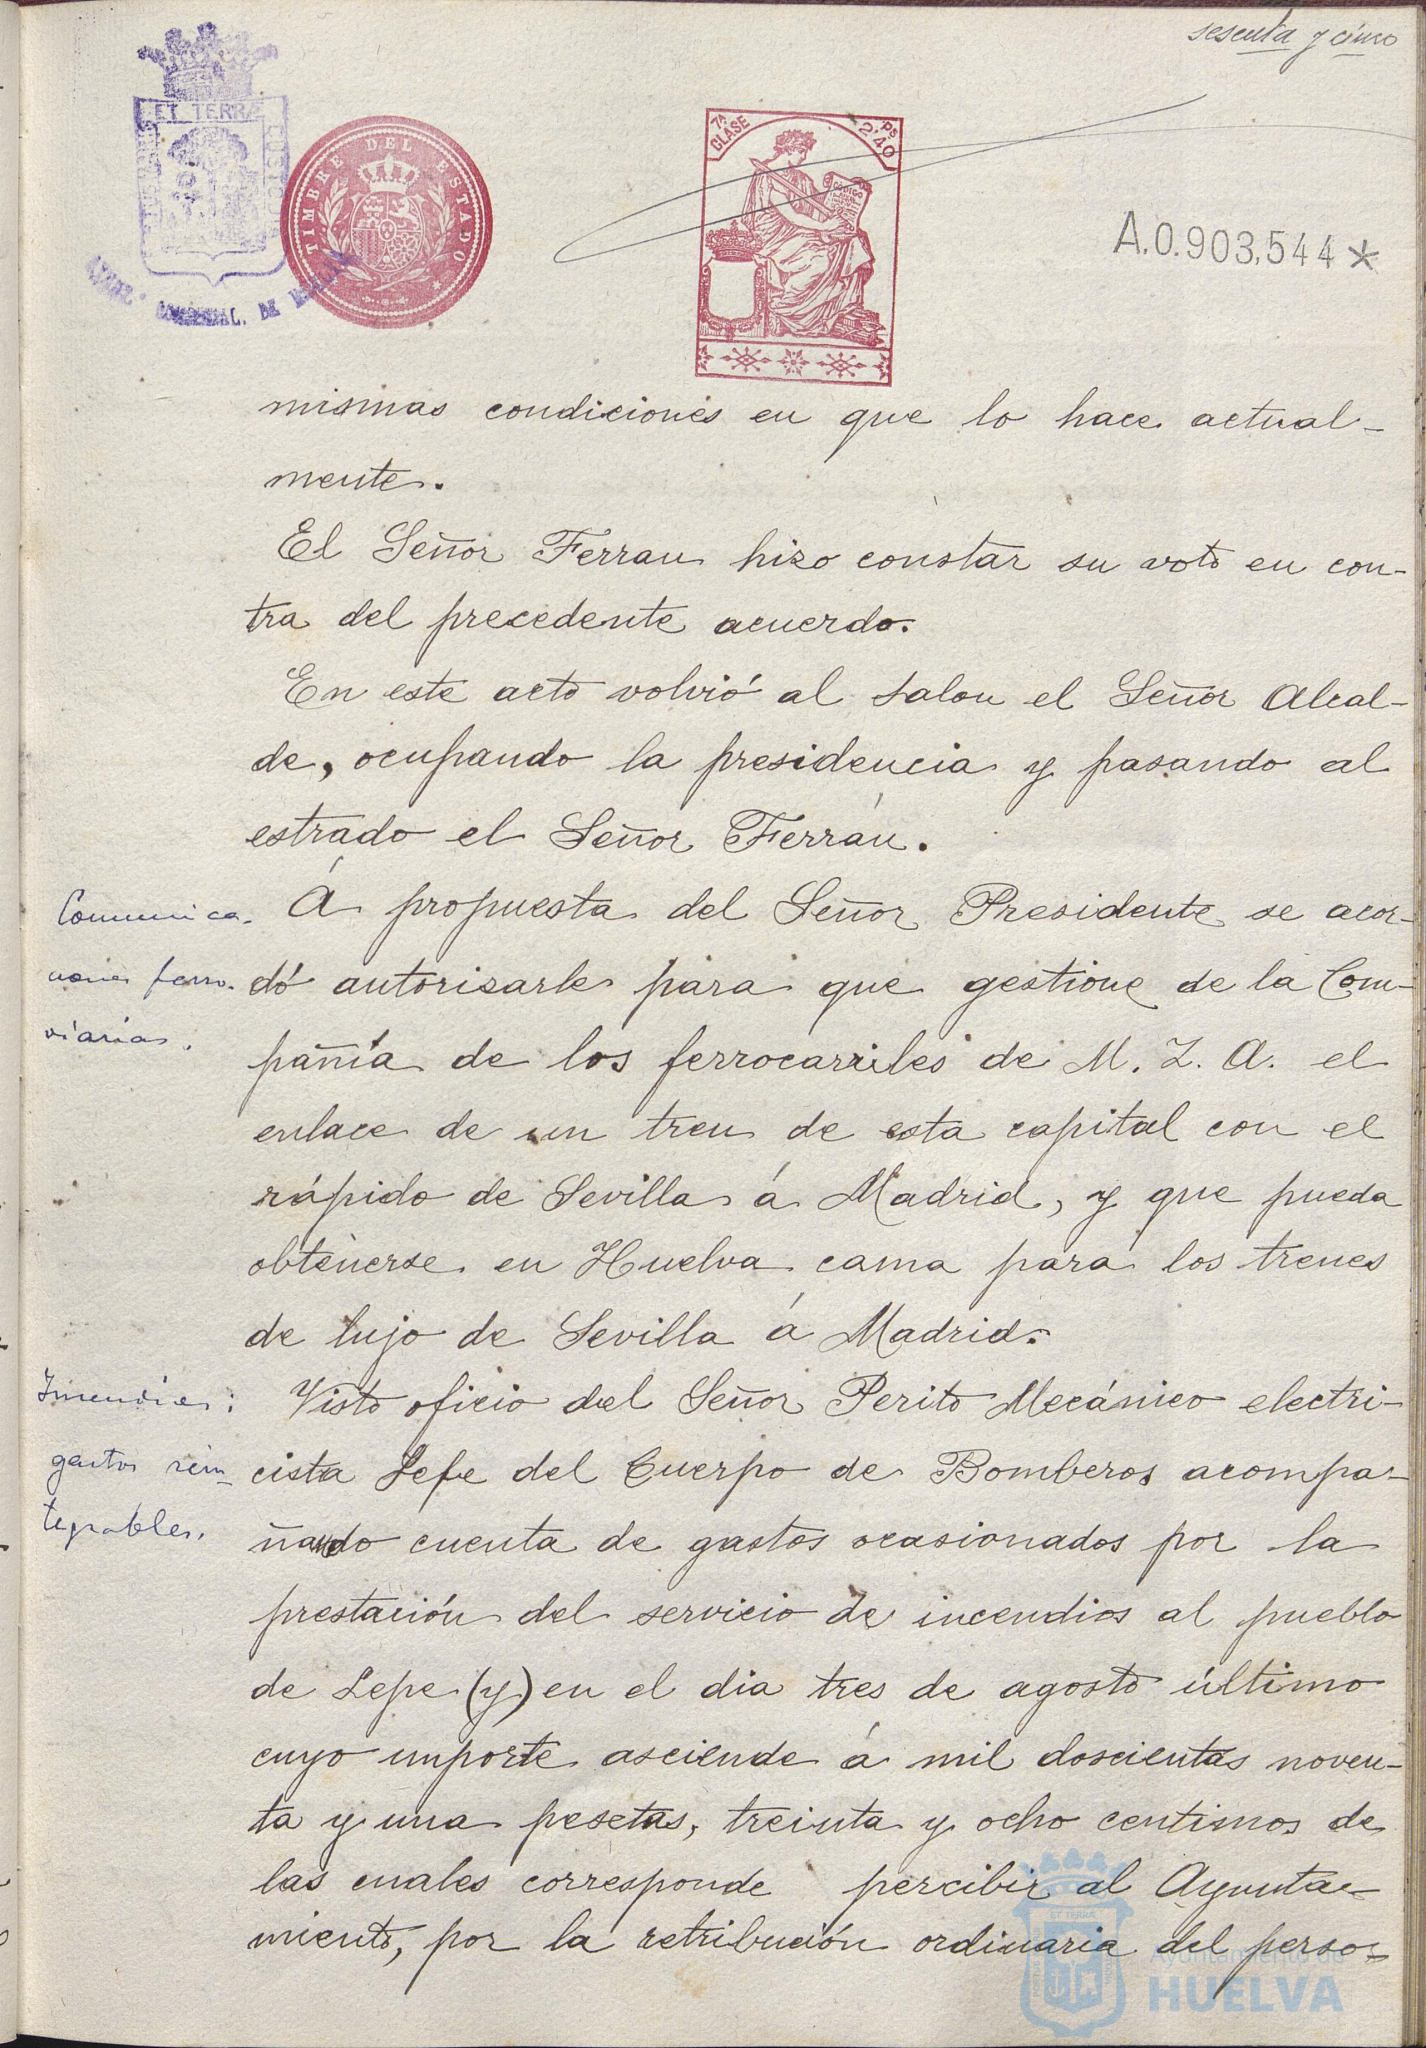 sesenta y cinco
ET TERRÆ
TIMBRE DEL ESTADO
7ª CLASE
2'40 Ps
CÓDIGO
A.0.903,544*
mismas condiciones en que lo hace actual-
mente.
El Señor Ferran hizo constar su voto en con-
tra del precedente acuerdo.
En este acto volvió al salon el Señor Alcal-
de, ocupando la presidencia y pasando al
estrado el Señor Ferrán.
Comunica-
ciones ferro-
viarias.
Á propuesta del Señor Presidente se acor-
dó autorizarle para que gestione de la Com-
pañía de los ferrocarriles de M. Z. A. el
enlace de un tren de esta capital con el
rápido de Sevilla á Madrid, y que pueda
obtenerse en Huelva cama para los trenes
de lujo de Sevilla á Madrid.
Incendios:
gastos rein-
tegrables.
Visto oficio del Señor Perito Mecánico electri-
cista Jefe del Cuerpo de Bomberos acompa-
ñando cuenta de gastos ocasionados por la
prestación del servicio de incendios al pueblo
de Lepe (y) en el dia tres de agosto último
cuyo importe asciende á mil doscientas noven-
ta y una pesetas, treinta y ocho centimos de
las cuales corresponde percibir al Ayunta-
miento, por la retribución ordinaria del perso-
Ayuntamiento de
HUELVA